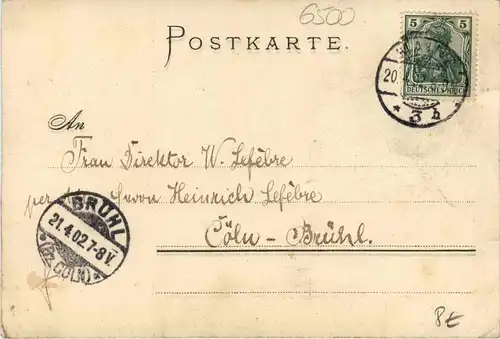 6500
POSTKARTE.
5 5
DEUTSCHES REICH
20.
* 3 b
An
Frau Direktor W. Lefèbre
per Herrn Heinrich Lefèbre
Cöln - Brühl.
BRÜHL
21.4.02.7-8V.
*(Bz. CÖLN)*